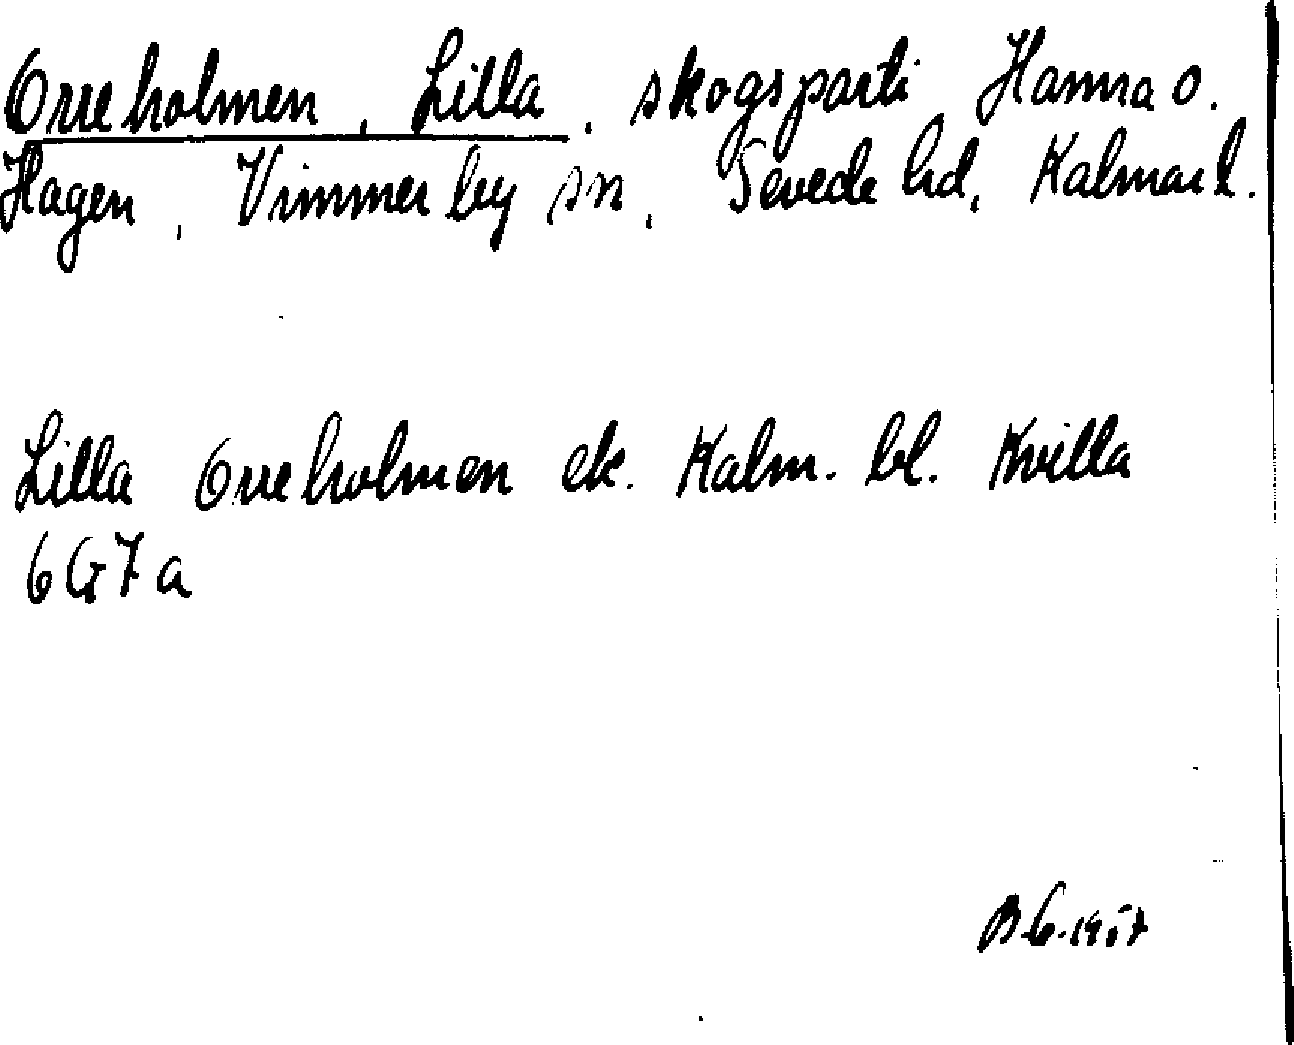 Orreholmen, Lilla, skogsparti Hamra o.
Hagen, Vimmerby sn, Sevede hd, Kalmar l.
Lilla Orreholmen ek. Kalm. bl. Kvilla
6G7a
B.G. 1957